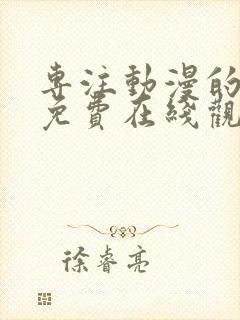 専注動漫的
免費在綫觀
徐睿亮